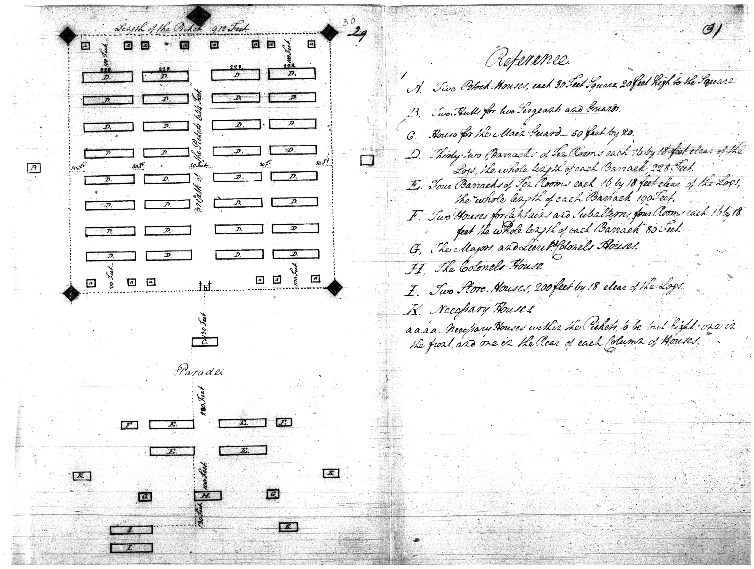 30
29
Length of the Picket 912 Feet
100 Feet
100 Feet
228
228
228
228
D. D. D. D.
D. D. D. D.
D. D. D. D.
D. D. D. D.
D. D. D. D.
D. D. D. D.
D. D. D. D.
D. D. D. D.
B
30 ft
30 ft
30 ft
100 Feet
100 Feet
100 Feet
Parade
100 Feet
F E. E. F.
E. E.
K K
100 Feet
G H G
I K
I
31
Reference
A. Two Block Houses, each 30 Feet Square 20 feet high to the Square
B. Two Hutts for two Sergeants and Guards
C. House for the Main Guard 50 feet by 20.
D. Thirty two, Barracks of Ten Rooms each 16 by 18 feet clear of the
Logs, the whole length of each Barrack 228 Feet.
E. Four Barracks of Ten Rooms each 16 by 18 feet clear of the Logs,
the whole length of each Barrack 190 Feet.
F. Two Houses for and Subalterns, four Rooms each by 18
feet the whole length of each Barrack 80 Feet.
G. The Majors, and Lieut Colonels Houses.
H. The Colonels House
I. Two Store Houses, 200 feet by 18 clear of the Logs.
K. Necessary Houses
a a. a. a. Necessary Houses within the Pickets, to be but Eight - one in
the front, and one in the Rear of each Column of Houses.